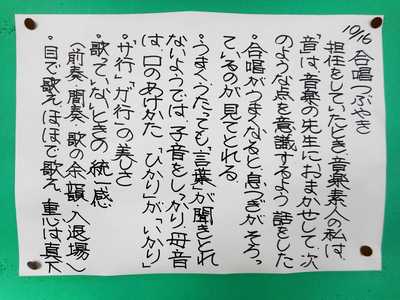 10/16 合唱つぶやき
担任をしていたとき音楽素人の私は、
「音は、音楽の先生におまかせして、次
のような点を意識するよう話をした
・合唱がうまくなると、息つぎがそろっ
ているのが見てとれる。
・うまくうたっても「言葉」が聞きとれ
ないようでは…子音をしっかり、母音
は、口のあけかた 「ひかり」が「いかり」
・「サ行」「ガ行」の美しさ
・歌っていないときの統一感
(前奏、間奏、歌の余韻、入退場)
・目で歌え、ほほで歌え 重心は真下